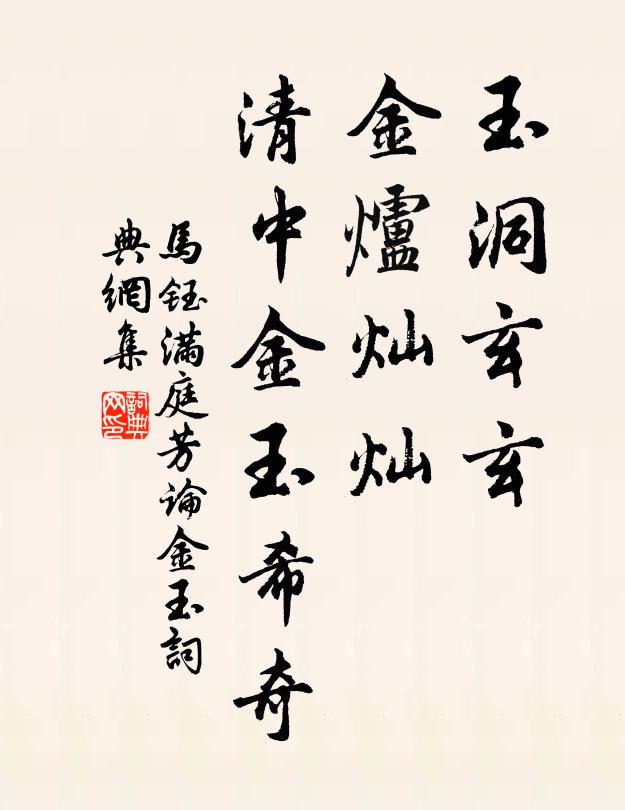 玉洞玄玄
金爐灿灿
清中金玉希奇
馬鈺滿庭芳論金玉詞
典網集
詞典
网印